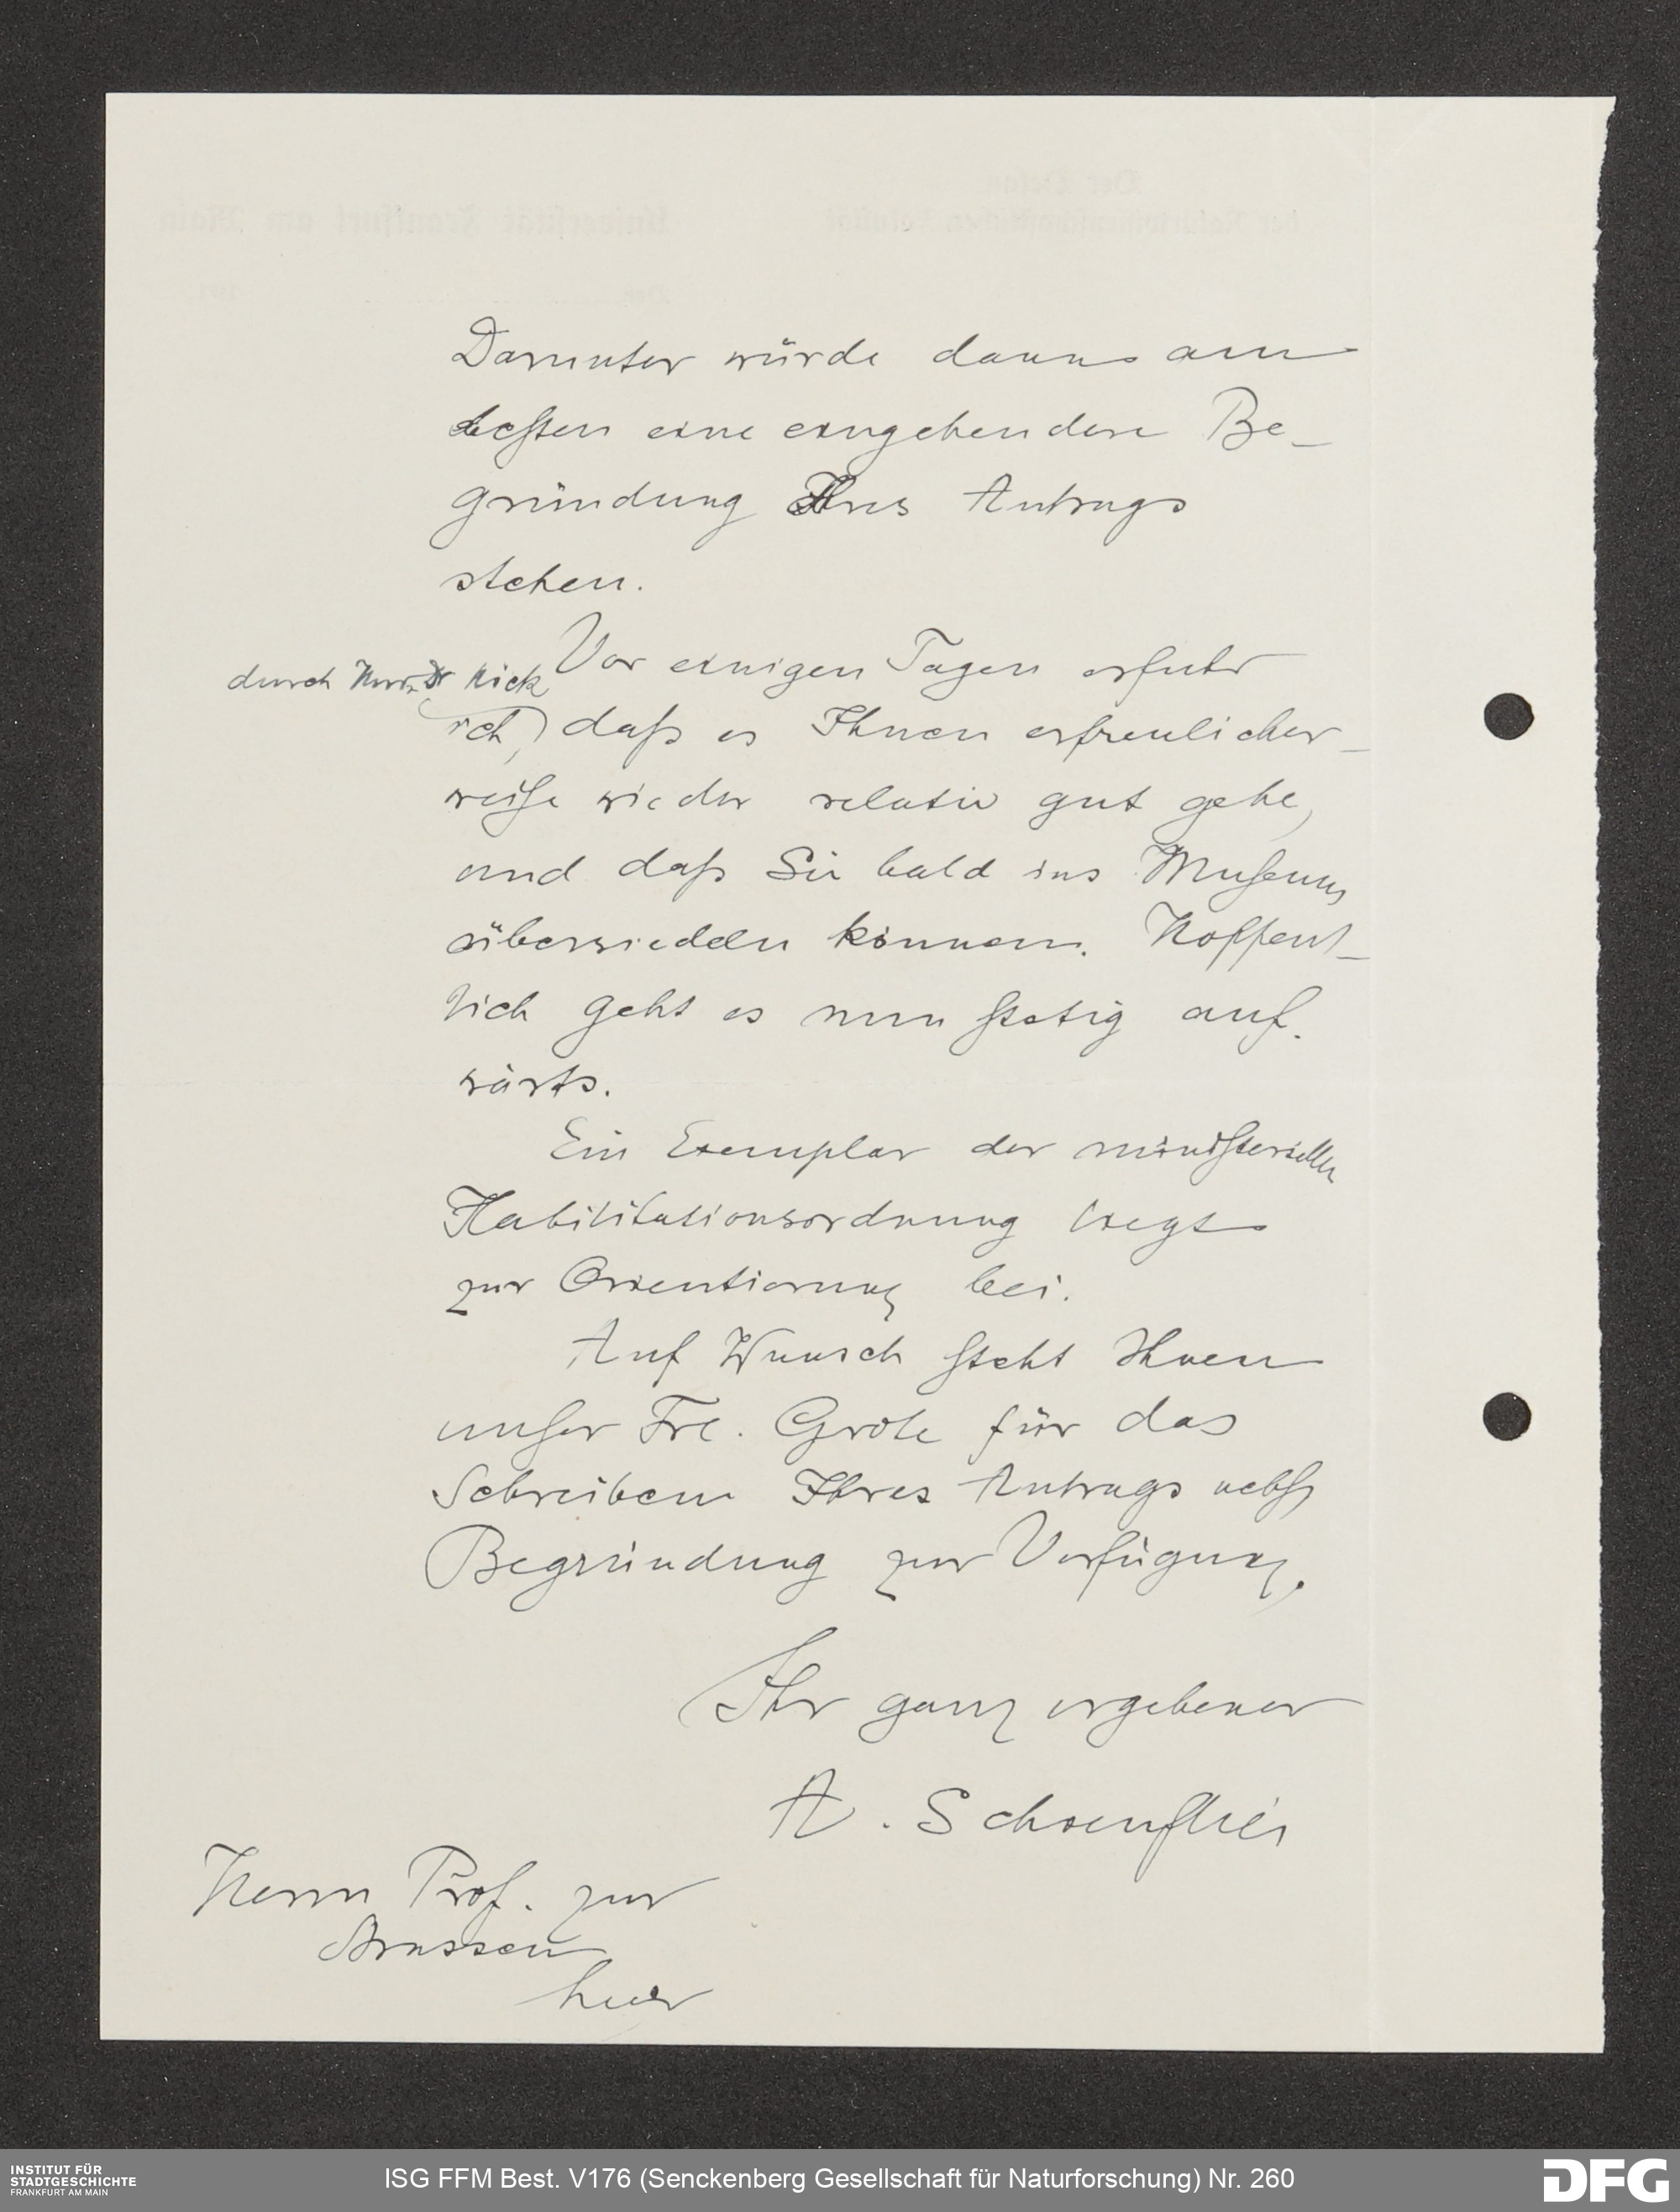 Darunter würde dann am
besten eine eingehendere Be-
gründung Ihres Antrags
stehen.
Vor einigen Tagen erfuhr
durch Herrn Dr Nick
ich, daß es Ihnen erfreulicher-
weise wieder relativ gut gehe,
und daß Sie bald ins Museum
übersiedeln können. Hoffent-
lich geht es nun stetig auf-
wärts.
Ein Exemplar der ministeriellen
Habilitationsordnung liegt
zur Orientierung bei.
Auf Wunsch steht Ihnen
unser Frl. Grote für das
Schreiben Ihres Antrags nebst
Begründung zur Verfügung.
Ihr ganz ergebener
A. Schoenflies
Herrn Prof. zur
Strassen
hier
INSTITUT FÜR
STADTGESCHICHTE
FRANKFURT AM MAIN
ISG FFM Best. V176 (Senckenberg Gesellschaft für Naturforschung) Nr. 260
DFG